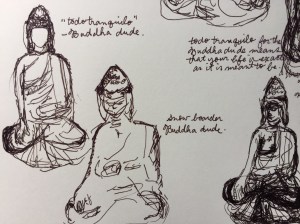 "todo tranquilo"
- Buddha dude.
todo tranquilo for the
Buddha dude means
that your life is exactly
as it is meant to be.
snow boarder
Buddha dude.